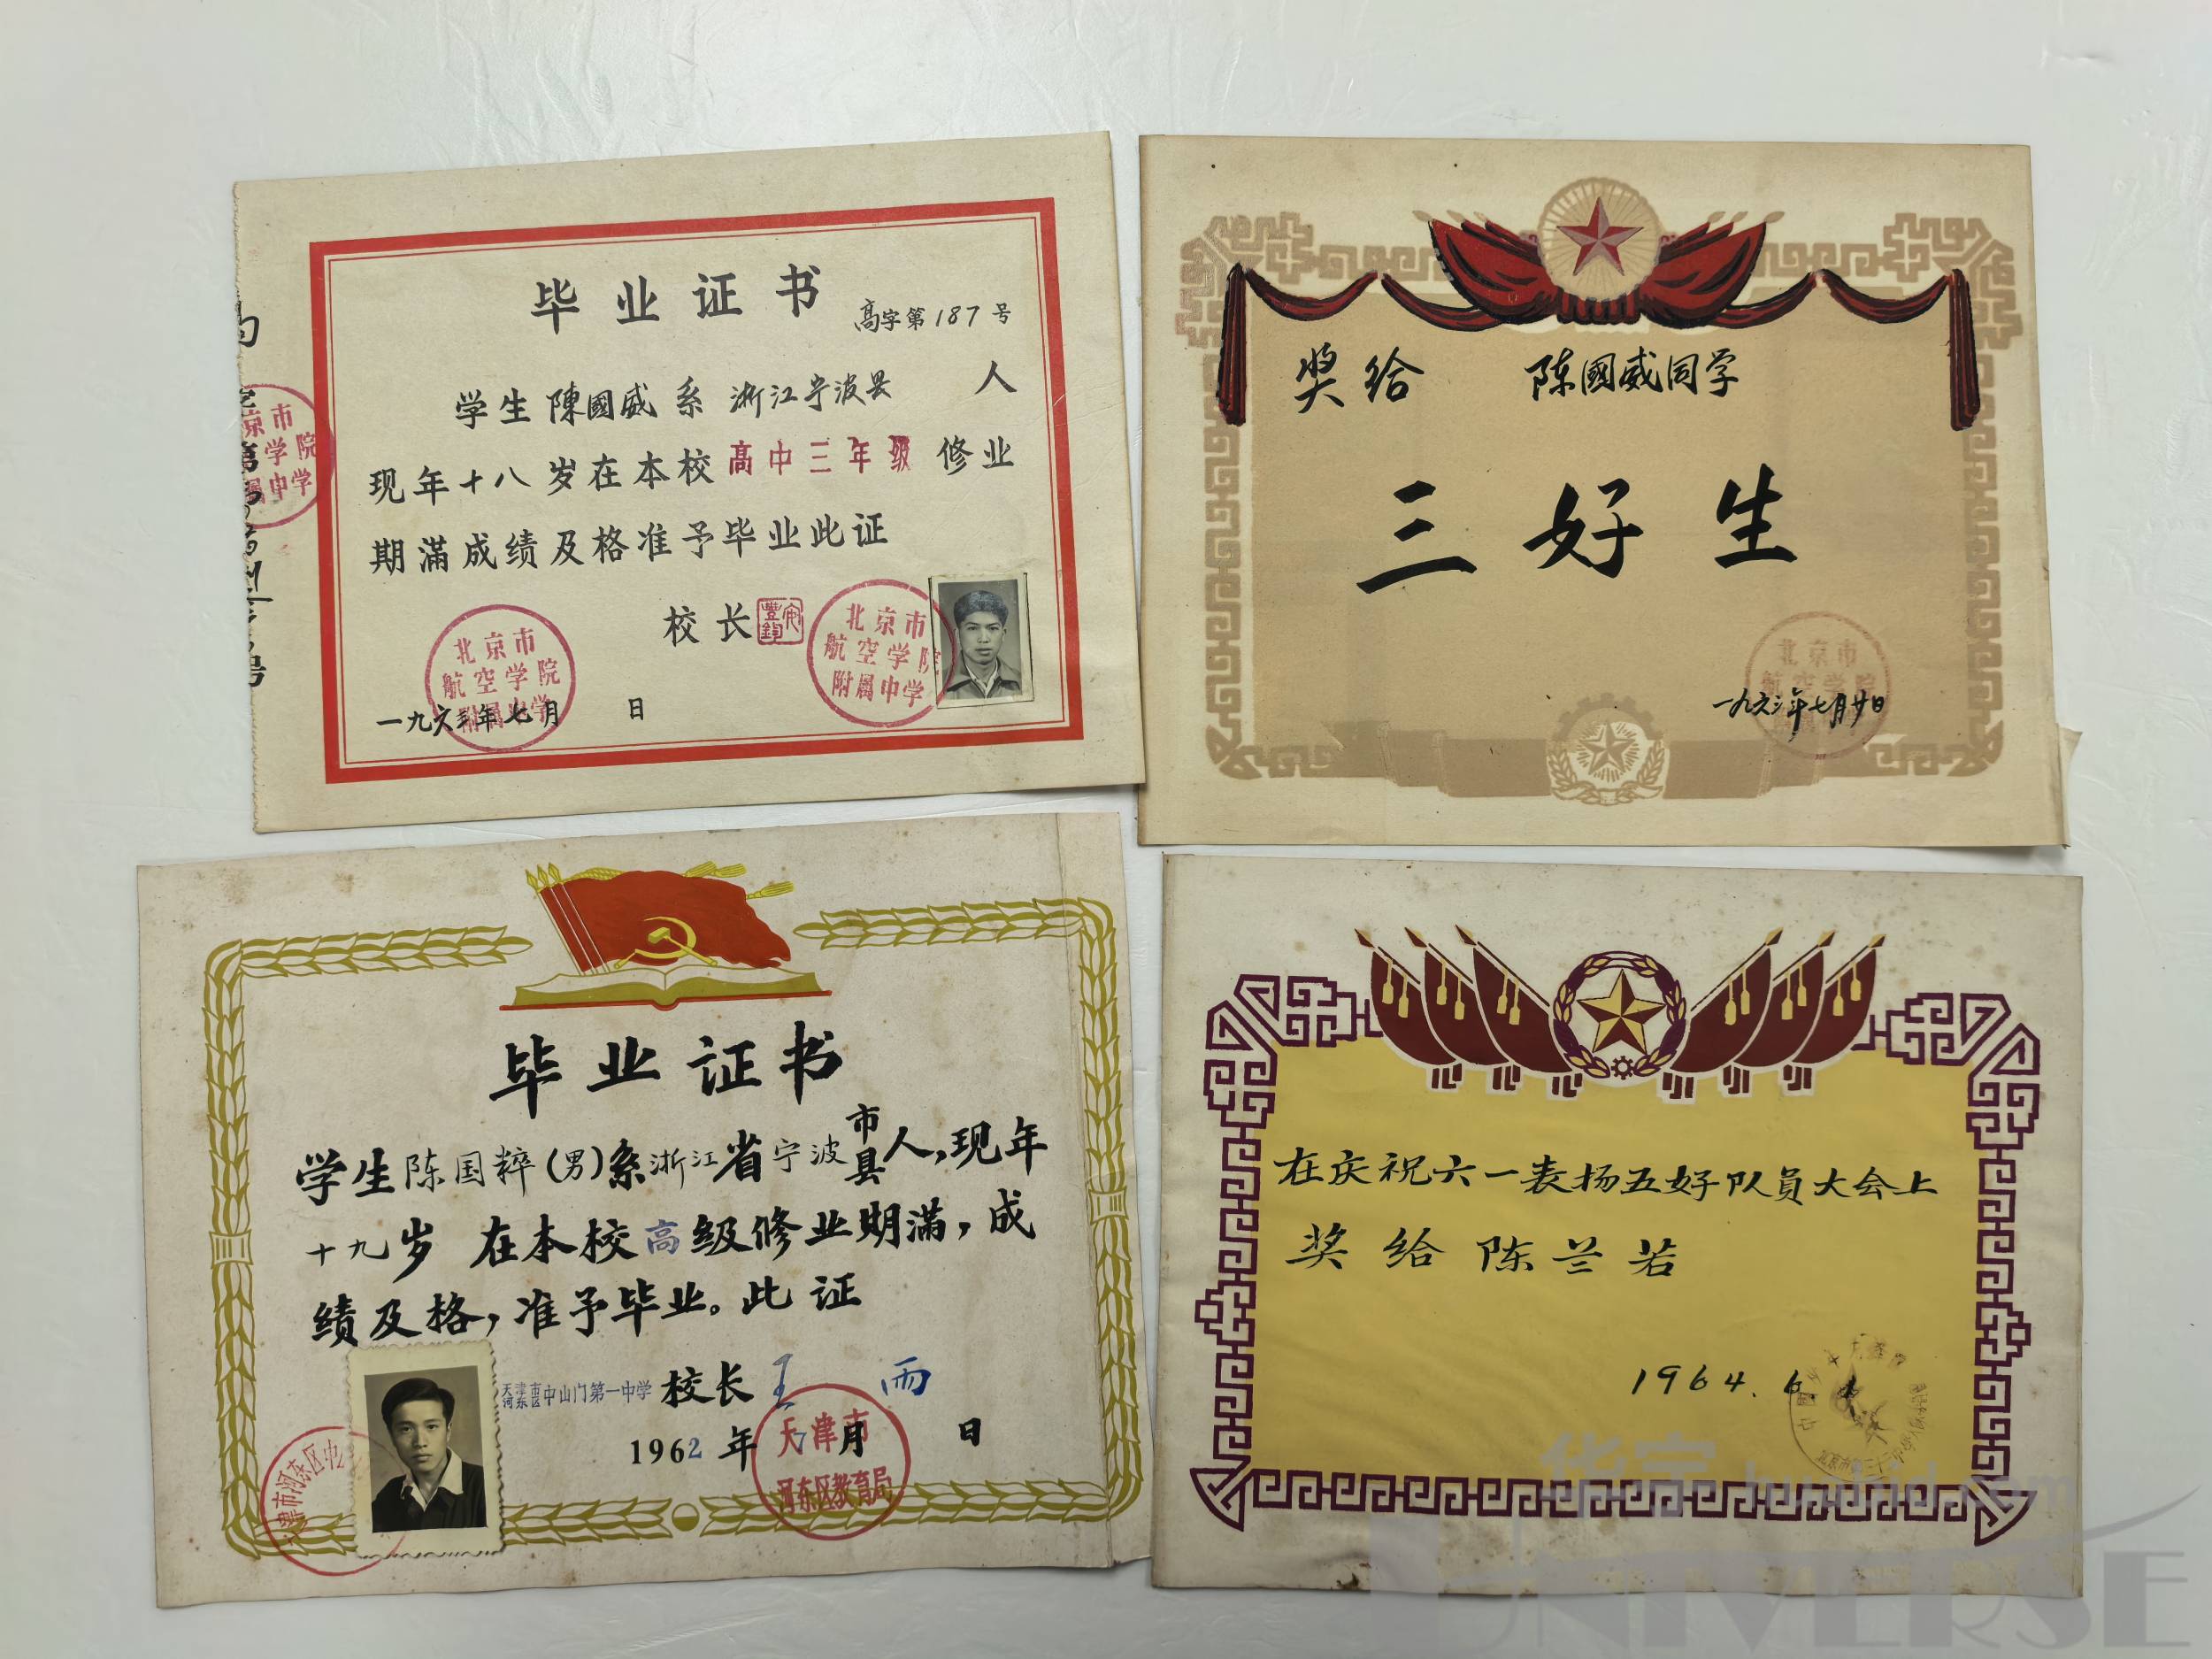 毕业证书
高字第187号
学生陳國威系浙江宁波县人
现年十八岁在本校高中三年级修业
期滿成绩及格准予毕业此证
校长
安豐鋗
北京市
航空学院
附属中学
北京市
航空学院
附属中学
一九六三年七月 日
京市
学院
属中学
奖给 陈國威同学
三好生
北京市
航空学院
一九六二年七月廿日
毕业证书
学生陈国粹(男)系浙江省宁波市县人,现年
十九岁 在本校高级修业期滿,成
绩及格,准予毕业。此证
天津市河东区中山门第一中学 校长 王雨
1962年7月 日
天津市
河东区教育局
天津市河东区中
在庆祝六一表扬五好队员大会上
奖给陈兰若
1964.6.1
华宇 huabid.com
UNIVERSE